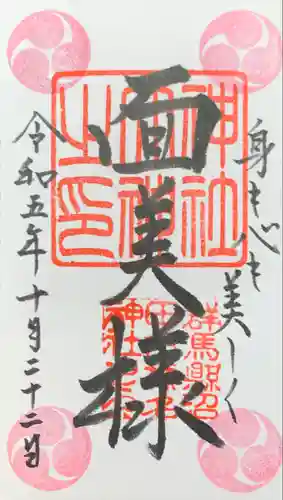 身も心も美しく
面美様
令和五年十月二十二日
神社
之印
群馬県沼
神社